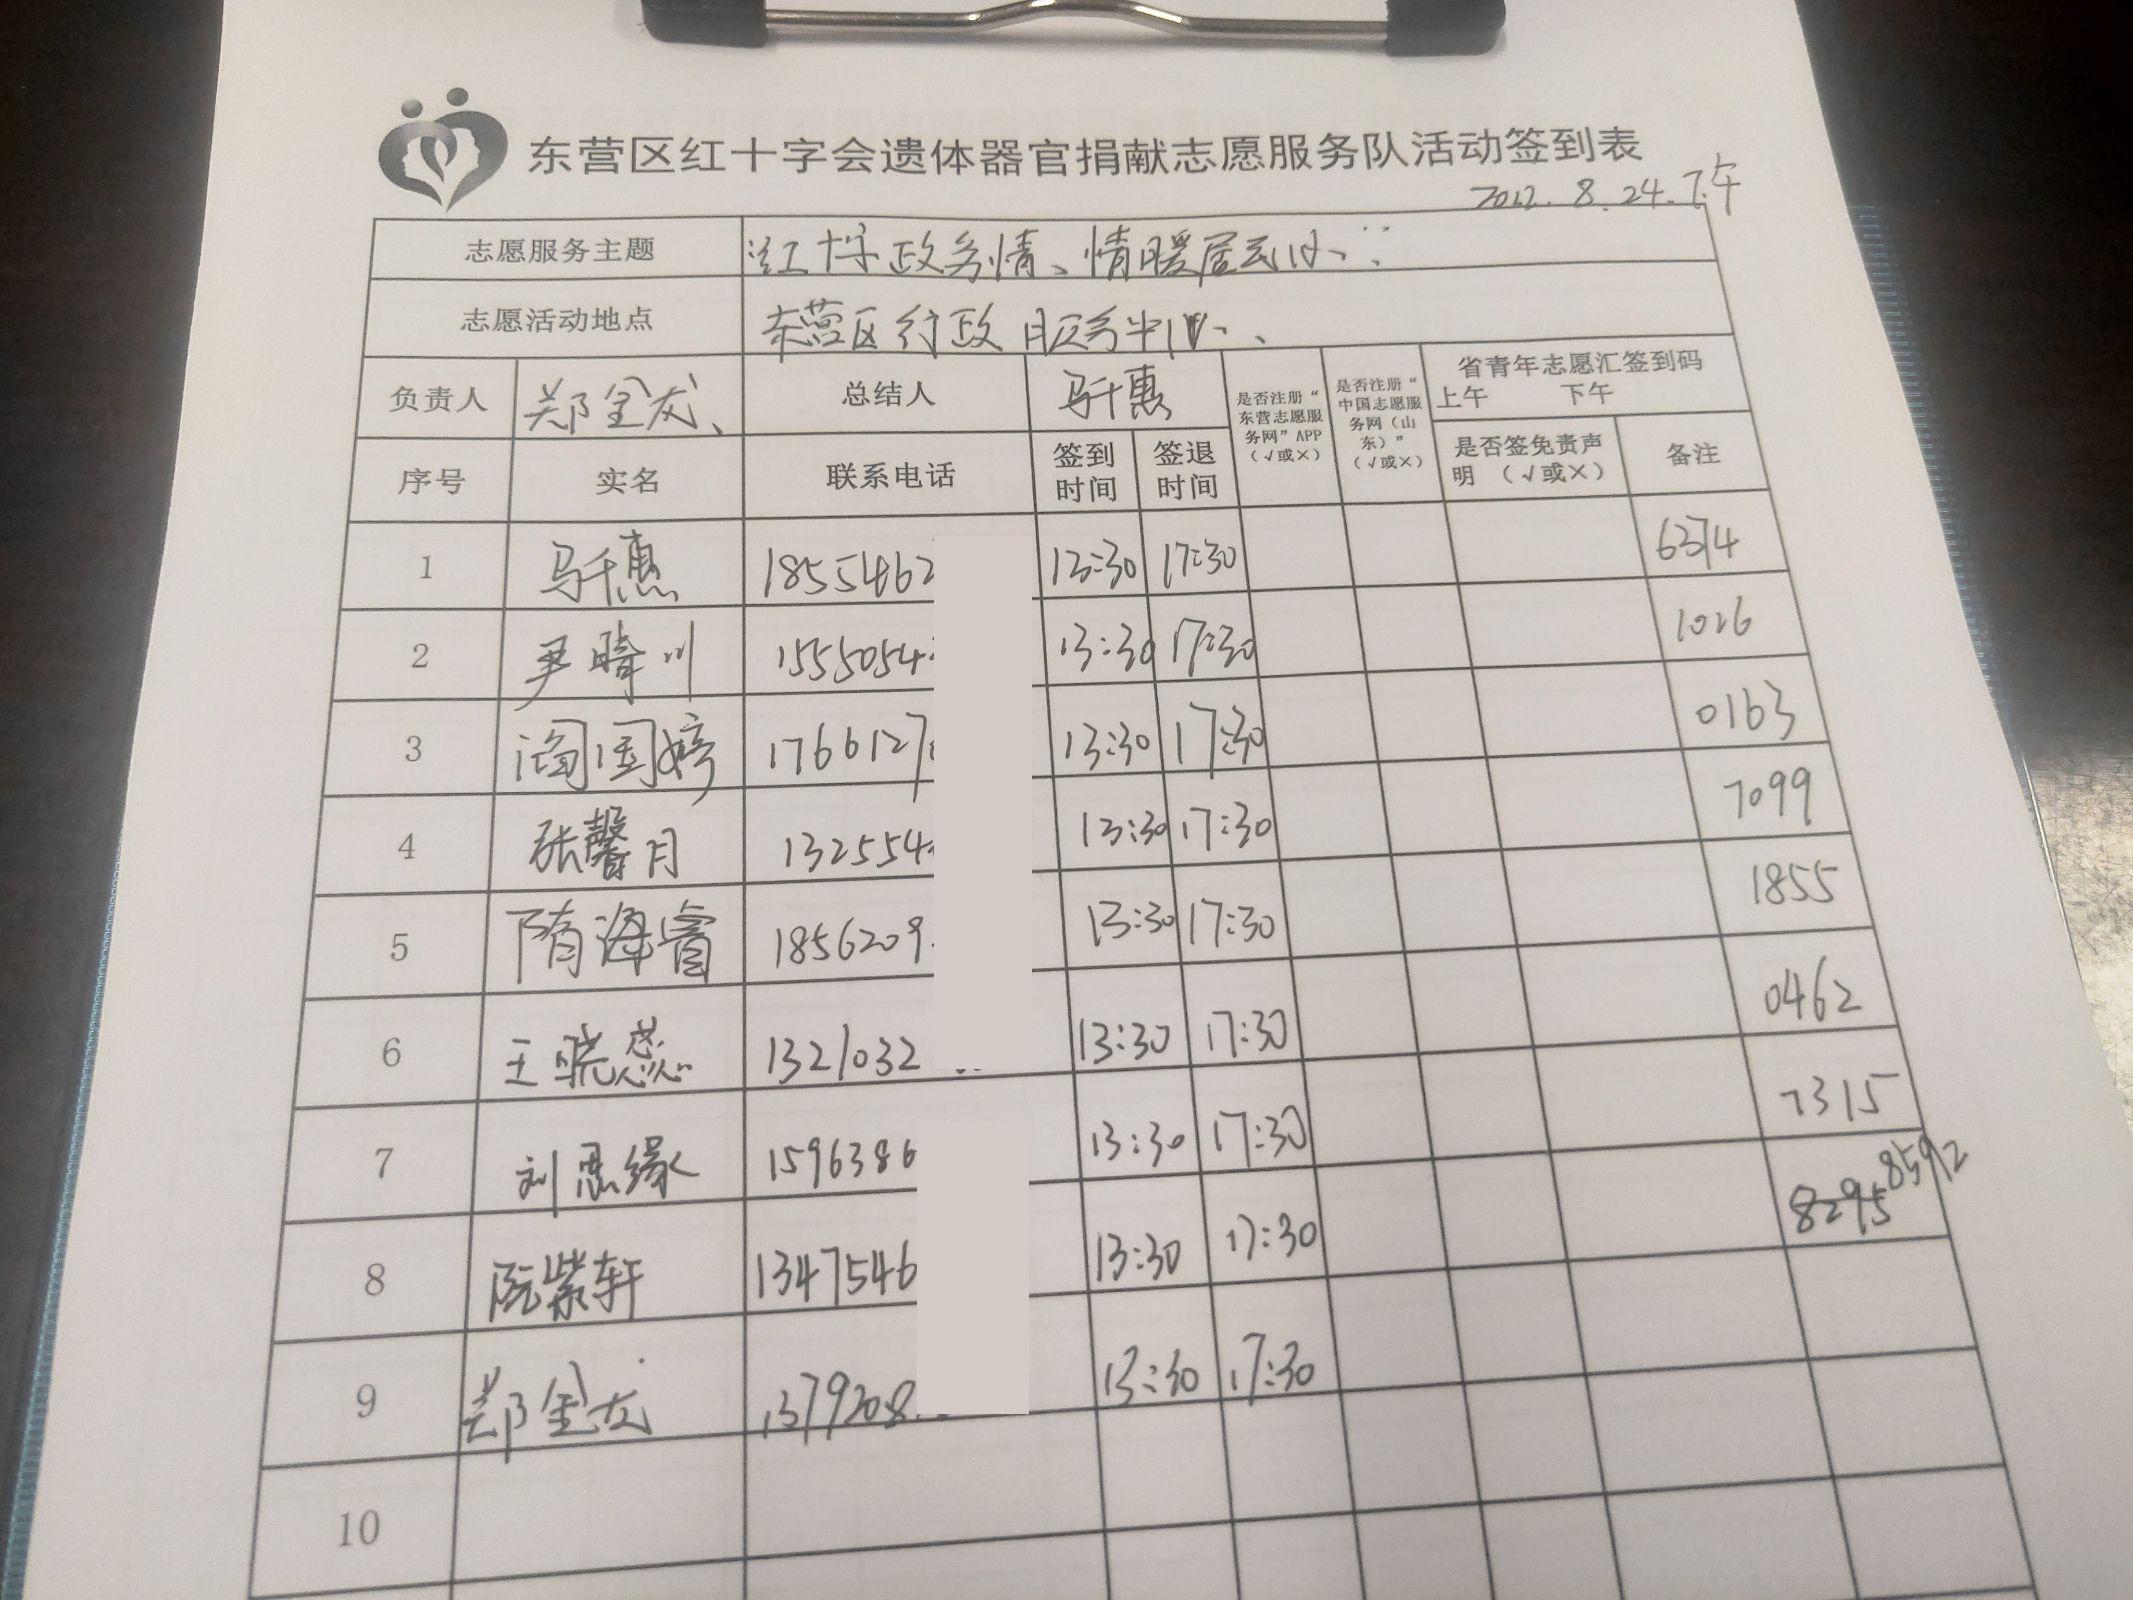 东营区红十字会遗体器官捐献志愿服务队活动签到表
2022.8.24.下午
志愿服务主题 红十字政务情、情暖居民心
志愿活动地点 东营区行政服务中心
负责人 郑金龙 总结人 马千惠 是否注册“东营志愿服务网”APP（√或×） 是否注册“中国志愿服务网（山东）”（√或×） 省青年志愿汇签到码 上午 下午
序号 实名 联系电话 签到时间 签退时间 是否签免责声明（√或×） 备注
1 马千惠 1855462 13:30 17:30 6374
2 尹琦川 1555054 13:30 17:30 1026
3 阎国婷 1766127 13:30 17:30 0163
4 张馨月 132554 13:30 17:30 7099
5 隋海睿 1856209 13:30 17:30 1855
6 王晓蕊 1321032 13:30 17:30 0462
7 刘思缘 1596386 13:30 17:30 7315
8 阮紫轩 1347546 13:30 17:30 8295 8592
9 郑金龙 1379208 13:30 17:30
10